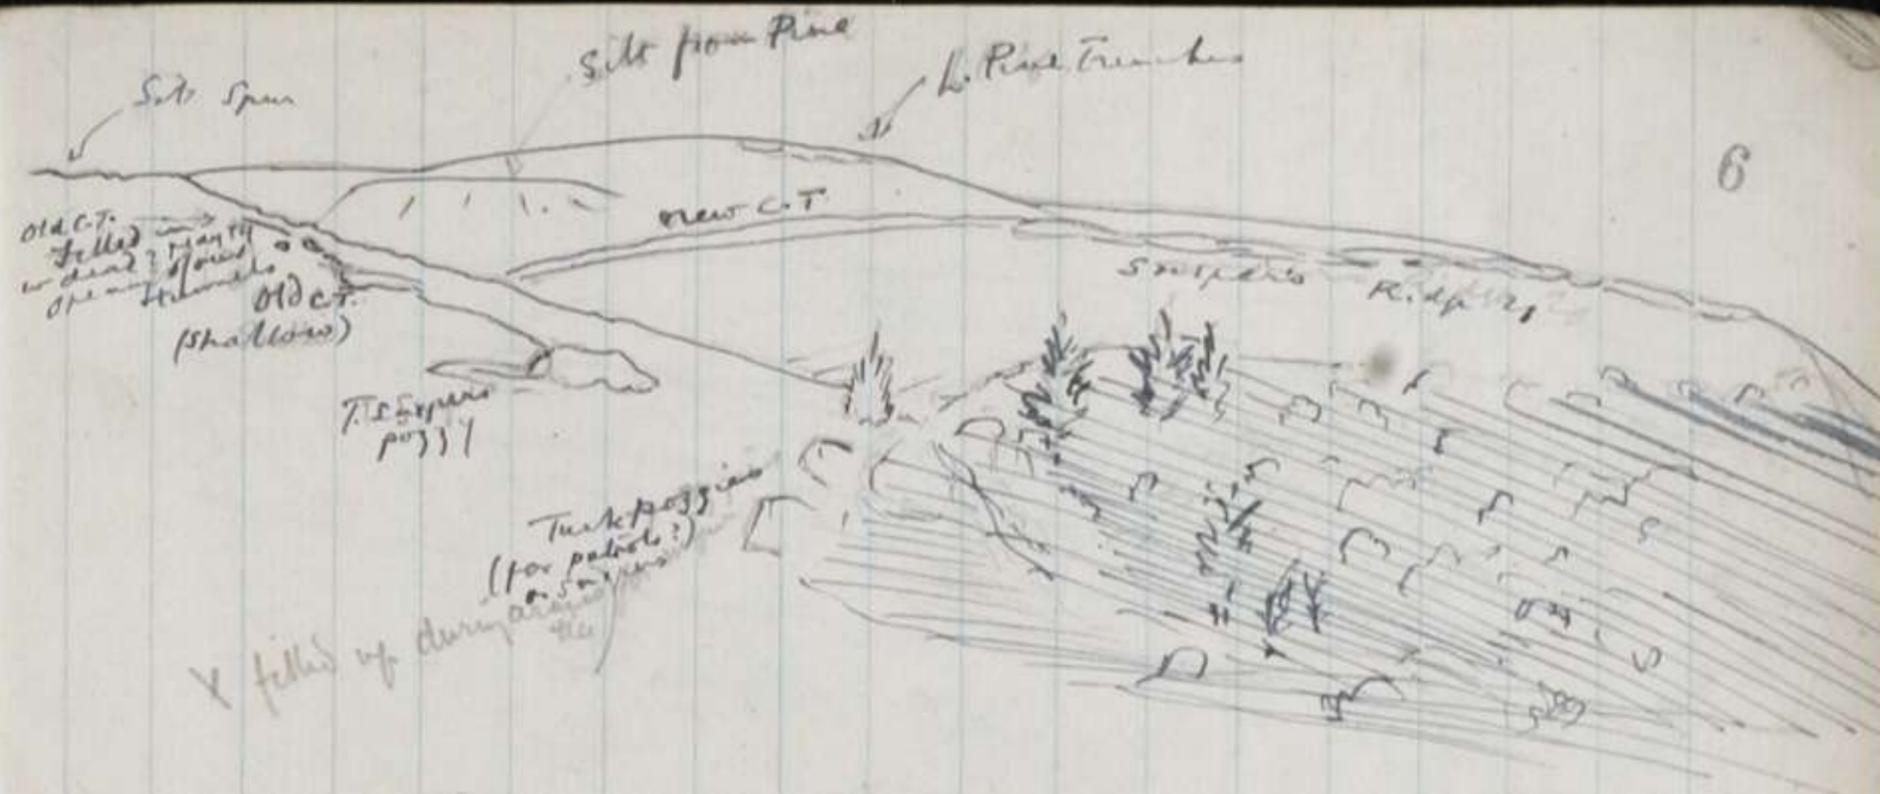 Silt Spur
Silt from Pine
L. Pine Trenches
6
Old C.T.
filled
w dead? Many
open
tunnels
Old C.T.
(shallow)
new C.T.
Sniper's Ridge
T. Snipers
pozzy
Turk pozzies
(for patrols?)
or snipers
X filled up during armistice